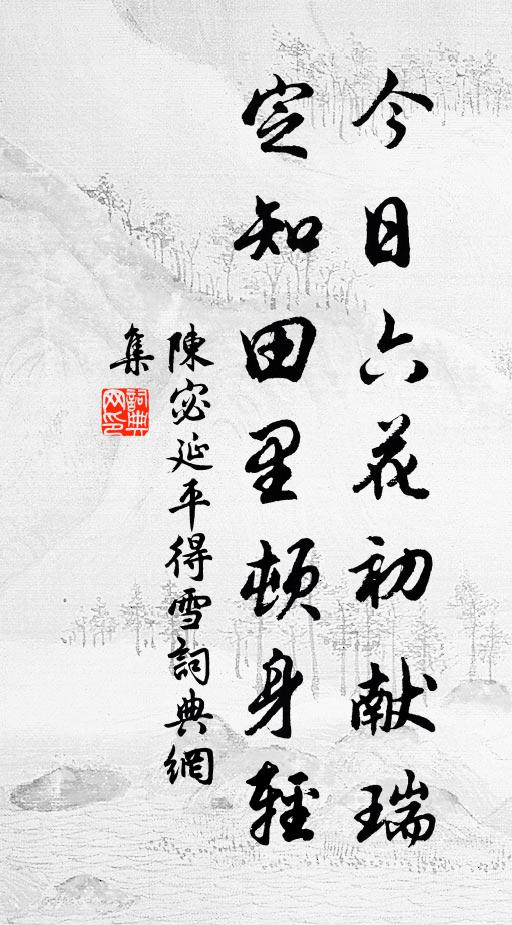 今日六花初献瑞
定知田里顿身轻
陳宓延平得雪詞典網
集
詞典网印